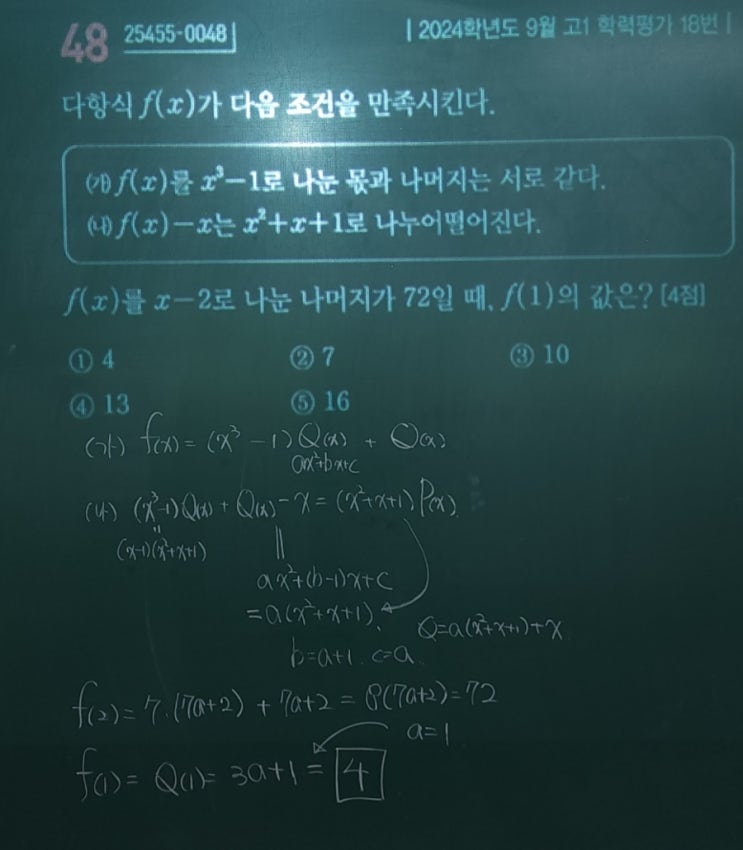 48 25455-0048 | 2024학년도 9월 고1 학력평가 18번 |
다항식 f(x)가 다음 조건을 만족시킨다.
(가) f(x)를 x³-1로 나눈 몫과 나머지는 서로 같다.
(나) f(x)-x는 x²+x+1로 나누어떨어진다.
f(x)를 x-2로 나눈 나머지가 72일 때, f(1)의 값은? [4점]
① 4 ② 7 ③ 10
④ 13 ⑤ 16
(가) f(x) = (x³-1)Q(x) + Q(x)
ax²+bx+c
(나) (x³-1)Q(x) + Q(x) - x = (x²+x+1)P(x)
=
(x-1)(x²+x+1) =
ax²+(b-1)x+c
= a(x²+x+1). Q=a(x²+x+1)+x
b=a+1. c=a
f(2) = 7·(7a+2) + 7a+2 = 8(7a+2) = 72
a=1
f(1) = Q(1) = 3a+1 = 4